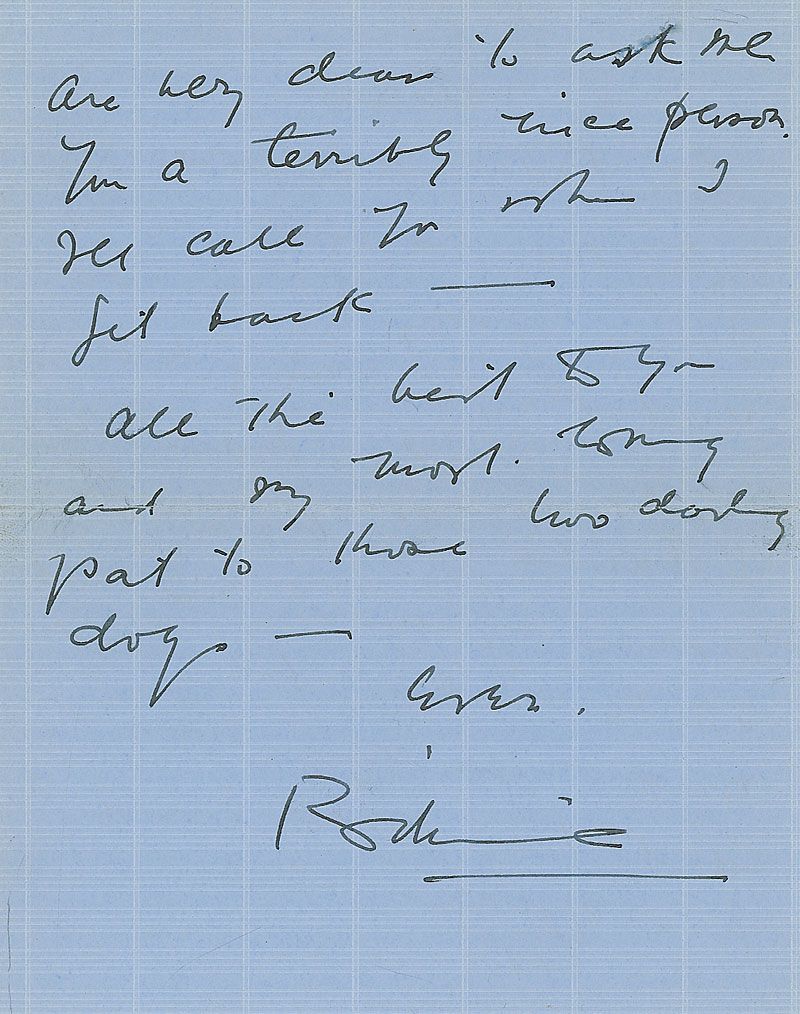 are very dear to ask me
You a terribly nice person.
Ill call you when I
Get back —
All the best to you
and my most loving
pat to those two darling
dogs —
Ever.